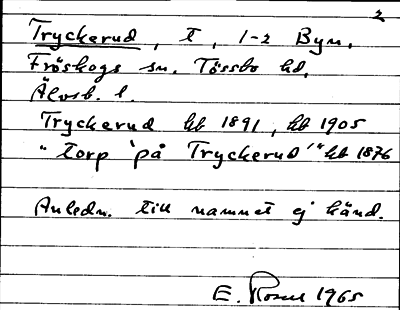 2
Tryckerud, t, 1-2 Byn.
Fröskogs sn. Tössbo hd.
Älvsb. l.
Tryckerud hb 1891, hb 1905
"torp 'på Tryckerud'" hb 1876
Anledn. till namnet ej känd.
E. 1965